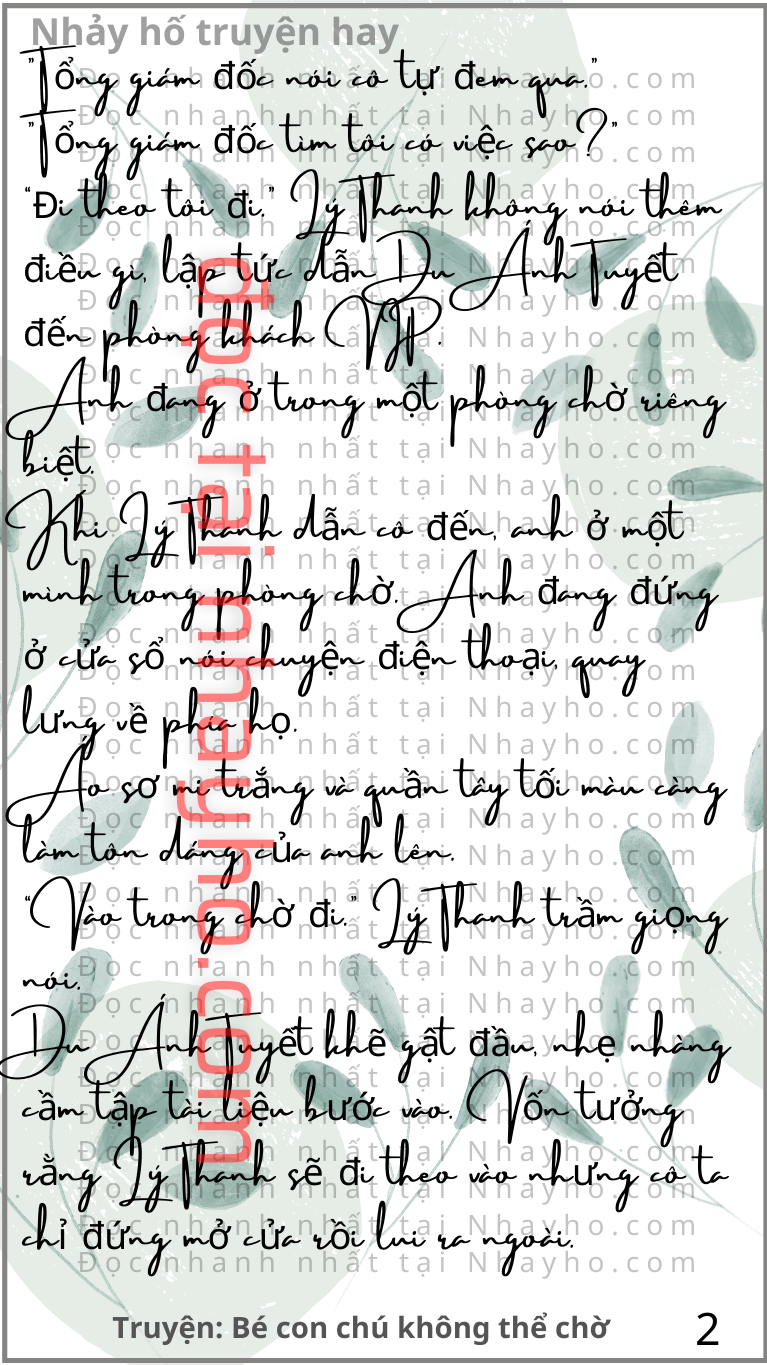 Nhảy hố truyện hay
"Tổng giám đốc nói cô tự đem qua."
"Tổng giám đốc tìm tôi có việc sao?"
"Đi theo tôi đi." Lý Thanh không nói thêm
điều gì, lập tức dẫn Du Ánh Tuyết
đến phòng khách VIP.
Anh đang ở trong một phòng chờ riêng
biệt.
Khi Lý Thanh dẫn cô đến, anh ở một
mình trong phòng chờ. Anh đang đứng
ở cửa sổ nói chuyện điện thoại, quay
lưng về phía họ.
Áo sơ mi trắng và quần tây tối màu càng
làm tôn dáng của anh lên.
"Vào trong chờ đi." Lý Thanh trầm giọng
nói.
Du Ánh Tuyết khẽ gật đầu, nhẹ nhàng
cầm tập tài liệu bước vào. Vốn tưởng
rằng Lý Thanh sẽ đi theo vào nhưng cô ta
chỉ đứng mở cửa rồi lui ra ngoài.
đọc tại nhayho.com
Đọc nhanh nhất tại Nhayho.com
Truyện: Bé con chú không thể chờ
2